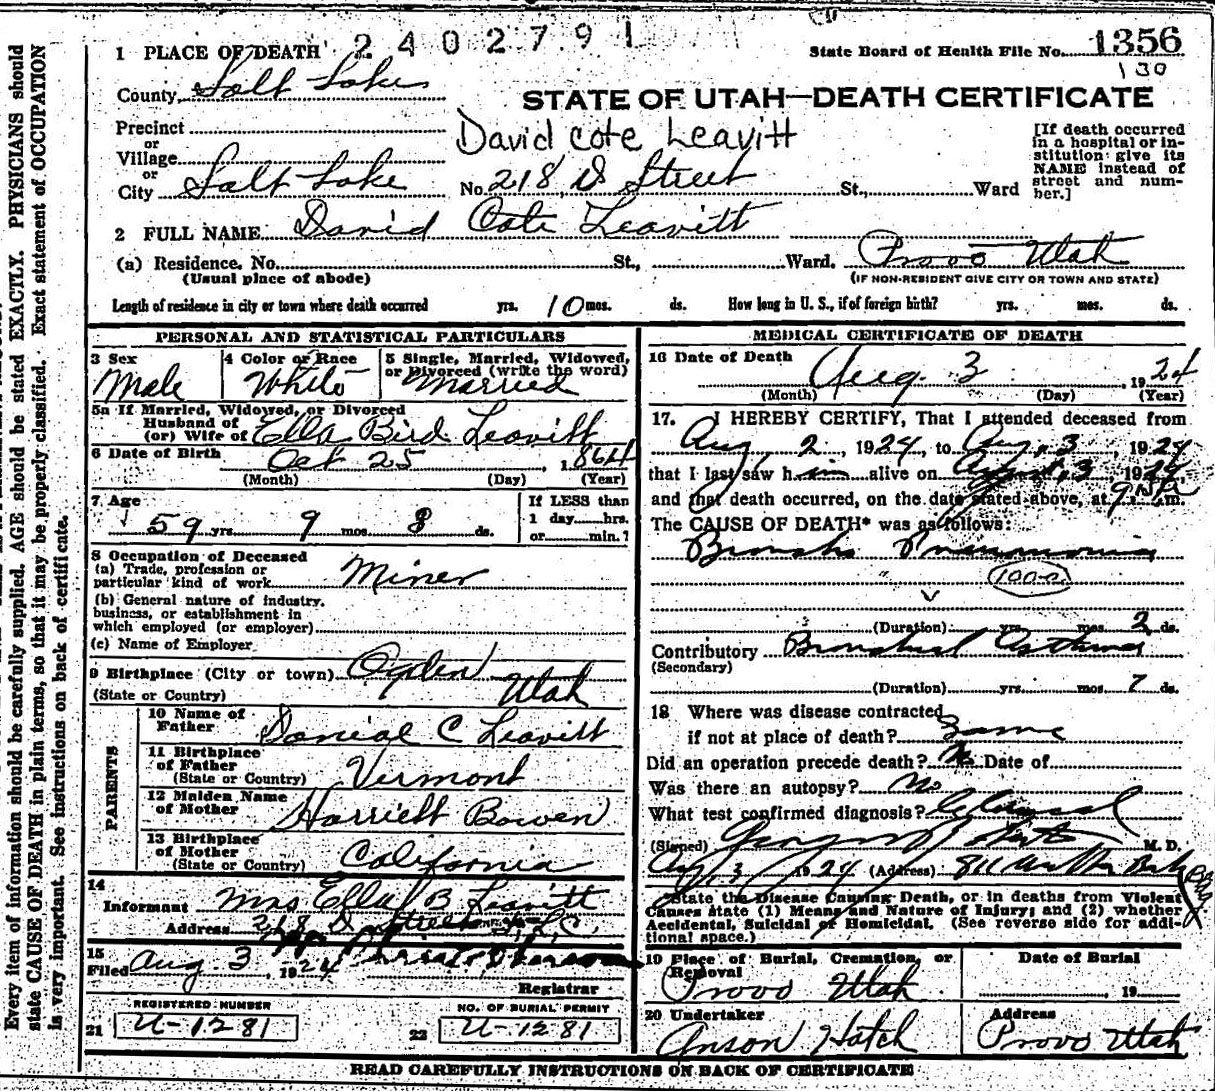 2402791
1 PLACE OF DEATH
State Board of Health File No. 1356
130
County Salt Lake
STATE OF UTAH—DEATH CERTIFICATE
Precinct
or
Village
or
City Salt Lake
David Cote Leavitt
No. 218 D Street St., Ward
[If death occurred
in a hospital or in-
stitution give its
NAME instead of
street and num-
ber.]
2 FULL NAME David Cote Leavitt
(a) Residence. No. St., Ward. Provo Utah
(Usual place of abode) (IF NON-RESIDENT GIVE CITY OR TOWN AND STATE)
Length of residence in city or town where death occurred yrs. 10 mos. ds. How long in U. S., if of foreign birth? yrs. mos. ds.
PERSONAL AND STATISTICAL PARTICULARS
3 Sex 4 Color or Race 5 Single, Married, Widowed,
or Divorced (write the word)
Male White Married
5a If Married, Widowed, or Divorced
Husband of
(or) Wife of Ella Bird Leavitt
6 Date of Birth Oct 25, 1864
(Month) (Day) (Year)
7 Age If LESS than
59 yrs. 9 mos. 8 ds. 1 day hrs.
or min.?
8 Occupation of Deceased
(a) Trade, profession or
particular kind of work Miner
(b) General nature of industry,
business, or establishment in
which employed (or employer)
(c) Name of Employer
9 Birthplace (City or town) Ogden
(State or Country) Utah
PARENTS
10 Name of
Father Danial C Leavitt
11 Birthplace
of Father
(State or Country) Vermont
12 Maiden Name
of Mother Harriett Bowen
13 Birthplace
of Mother
(State or Country) California
14
Informant Mrs Ella B Leavitt
Address 218 D Street S.L.C.
15
Filed Aug. 3, 1924
Registrar
REGISTERED NUMBER NO. OF BURIAL PERMIT
21 U-1281 22 U-1281
MEDICAL CERTIFICATE OF DEATH
16 Date of Death Aug. 3, 1924
(Month) (Day) (Year)
17. I HEREBY CERTIFY, That I attended deceased from
Aug 2, 1924, to Aug. 3, 1924
that I last saw him alive on August 3, 1924,
and that death occurred, on the date stated above, at 9 m.
The CAUSE OF DEATH* was as follows:
Broncho Pneumonia
(Duration) yrs. mos. 2 ds.
Contributory Bronchial Asthma
(Secondary)
(Duration) yrs. mos. 7 ds.
18 Where was disease contracted
if not at place of death? Same
Did an operation precede death? No Date of
Was there an autopsy? No
What test confirmed diagnosis? Clinical
(Signed) M. D.
Aug. 3, 1924 (Address)
State the Disease Causing Death, or in deaths from Violent
Causes state (1) Means and Nature of Injury; and (2) whether
Accidental, Suicidal or Homicidal. (See reverse side for addi-
tional space.)
19 Place of Burial, Cremation, or
Removal Date of Burial
Provo Utah , 19
20 Undertaker Address
Anson Hatch Provo Utah
READ CAREFULLY INSTRUCTIONS ON BACK OF CERTIFICATE
Every item of information should be carefully supplied. AGE should be stated EXACTLY. PHYSICIANS should
state CAUSE OF DEATH in plain terms, so that it may be properly classified. Exact statement of OCCUPATION
is very important. See instructions on back of certificate.